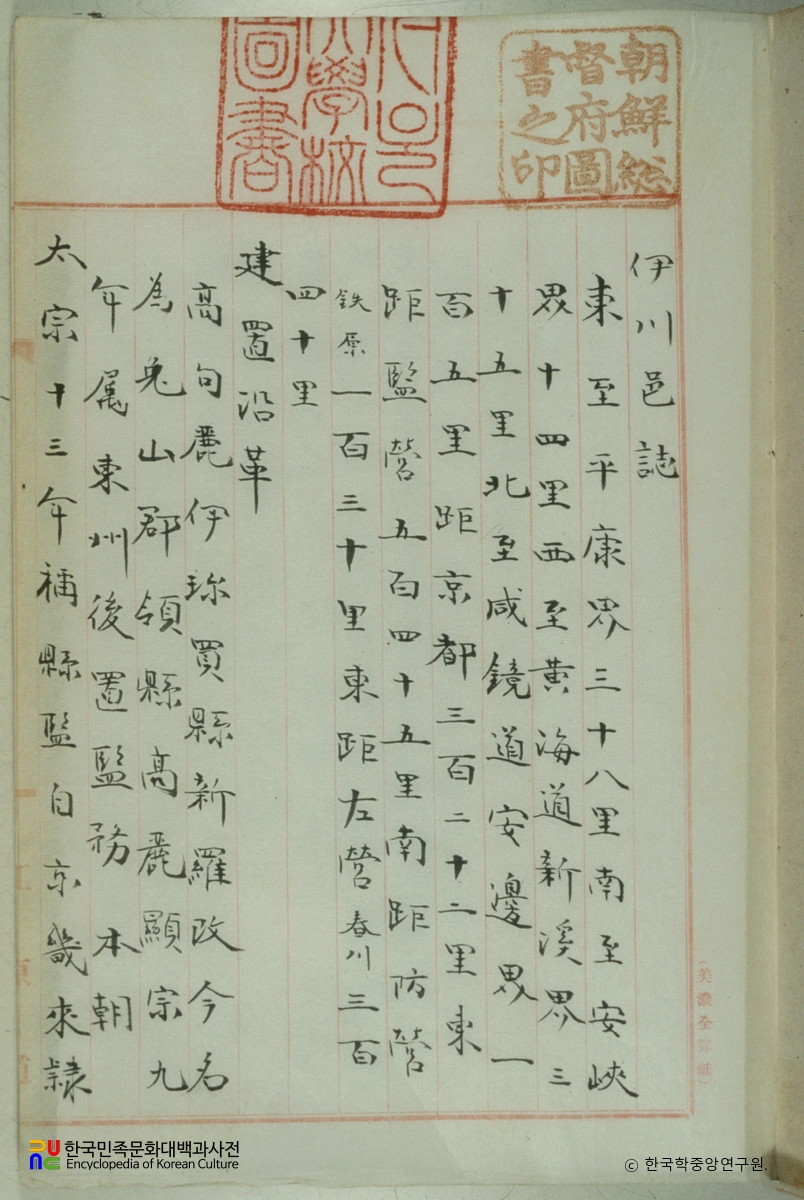 朝鮮総
督府圖
書之印
大學校
圖書
伊川邑誌
東至平康界三十八里南至安峽
界十四里西至黃海道新溪界三
十五里北至咸鏡道安邊界一
百五里距京都三百二十二里東
距監營五百四十五里南距防營
鉄原一百三十里東距左營春川三百
四十里
建置沿革
高句麗伊珎買縣新羅改今名
為兎山郡領縣高麗顯宗九
年属東州後置監務本朝
太宗十三年稱縣監自京畿來隷
한국민족문화대백과사전
Encyclopedia of Korean Culture
ⓒ 한국학중앙연구원.